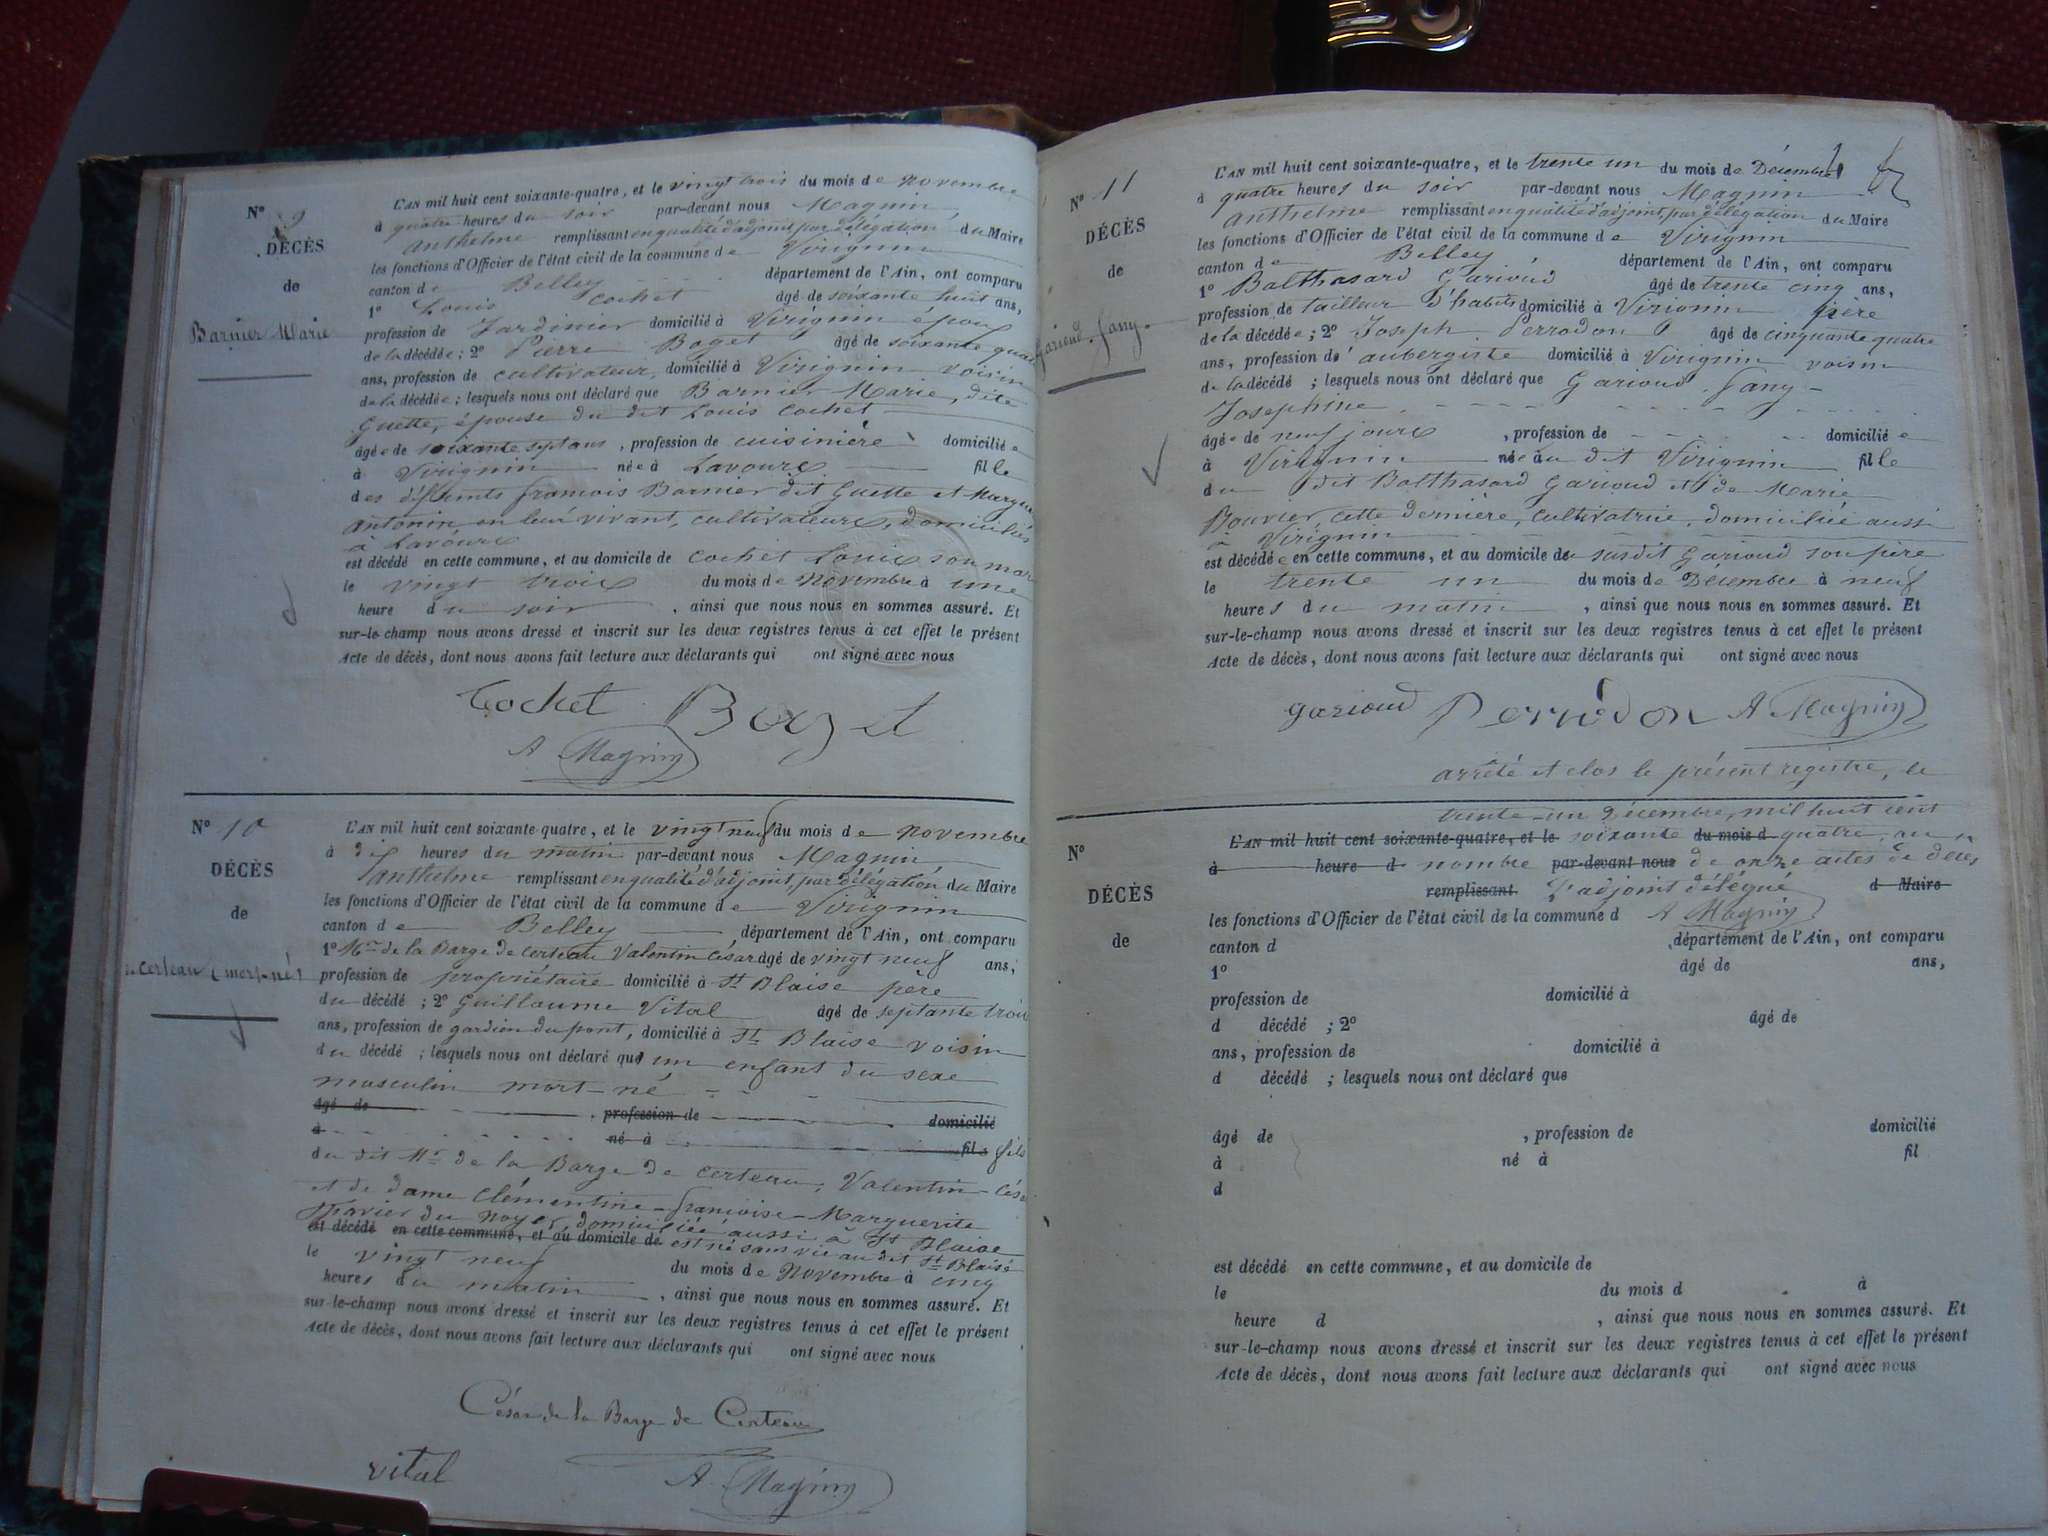 N° 9
DÉCÈS
de
Barnier Marie
L'AN mil huit cent soixante-quatre, et le vingt trois du mois de novembre
à quatre heures du soir par-devant nous Magnin
Anthelme remplissant en qualité d'adjoint, par délégation du Maire
les fonctions d'Officier de l'état civil de la commune de Virignin
canton de Belley département de l'Ain, ont comparu
1° Louis Cochet âgé de soixante huit ans,
profession de Jardinier domicilié à Virignin époux
de la décédée ; 2° Pierre Boget âgé de soixante quatre
ans, profession de cultivateur, domicilié à Virignin voisin
de la décédée ; lesquels nous ont déclaré que Barnier Marie, dite
Guette, épouse du dit Louis Cochet
âgée de soixante sept ans, profession de cuisinière domiciliée
à Virignin née à Lavours fille
des défunts François Barnier dit Guette et Margue
Antonin, en leur vivant, cultivateurs, domiciliés
à Lavours
est décédée en cette commune, et au domicile de Cochet Louis son mari
le vingt trois du mois de Novembre à une
heure du soir, ainsi que nous nous en sommes assuré. Et
sur-le-champ nous avons dressé et inscrit sur les deux registres tenus à cet effet le présent
Acte de décès, dont nous avons fait lecture aux déclarants qui ont signé avec nous
Cochet Boget
A Magnin
N° 10
DÉCÈS
de
de Certeau (mort-né)
L'AN mil huit cent soixante-quatre, et le vingt neuf du mois de novembre
à dix heures du matin par-devant nous Magnin
Anthelme remplissant en qualité d'adjoint, par délégation du Maire
les fonctions d'Officier de l'état civil de la commune de Virignin
canton de Belley département de l'Ain, ont comparu
1° Mr de la Barge de Certeau Valentin César âgé de vingt neuf ans,
profession de propriétaire domicilié à St Blaise père
du décédé ; 2° Guillaume Vital âgé de septante trois
ans, profession de gardien du pont, domicilié à St Blaise voisin
du décédé ; lesquels nous ont déclaré que un enfant du sexe
masculin mort-né
âgé de , profession de domicilié
à né à fils fils
du dit Mr de la Barge de Certeau, Valentin-Césa
et de dame Clémentine-Françoise-Marguerite
du Noyer, domiciliée aussi à St Blaise
est décédé en cette commune, et au domicile de est né sans vie au dit St Blaise
le vingt neuf du mois de Novembre à cinq
heures du matin, ainsi que nous nous en sommes assuré. Et
sur-le-champ nous avons dressé et inscrit sur les deux registres tenus à cet effet le présent
Acte de décès, dont nous avons fait lecture aux déclarants qui ont signé avec nous
César de la Barge de Certeau
vital A Magnin
N° 11
DÉCÈS
de
Garioud, Fany.
L'AN mil huit cent soixante-quatre, et le trente un du mois de Décembre
à quatre heures du soir par-devant nous Magnin
Anthelme remplissant en qualité d'adjoint, par délégation du Maire
les fonctions d'Officier de l'état civil de la commune de Virignin
canton de Belley département de l'Ain, ont comparu
1° Balthasard Garioud âgé de trente cinq ans,
profession de tailleur d'habits domicilié à Virignin père
de la décédée ; 2° Joseph Perrodon âgé de cinquante quatre
ans, profession d'aubergiste domicilié à Virignin voisin
de la décédé ; lesquels nous ont déclaré que Garioud Fany-
Josephine
âgée de neuf jours, profession de domicilié e
à Virignin née au dit Virignin fille
du dit Balthasard Garioud et de Marie
Bouvier, cette dernière, cultivatrice, domiciliée aussi
à Virignin
est décédée en cette commune, et au domicile du susdit Garioud son père
le trente un du mois de Décembre à neuf
heures du matin, ainsi que nous nous en sommes assuré. Et
sur-le-champ nous avons dressé et inscrit sur les deux registres tenus à cet effet le présent
Acte de décès, dont nous avons fait lecture aux déclarants qui ont signé avec nous
garioud Perrodon A Magnin
arrêté et clos le présent registre, le
trente-un Décembre, mil huit cent
N°
DÉCÈS
de
L'AN mil huit cent soixante-quatre, et le soixante du mois d quatre, au
à heure d nombre par-devant nous de onze actes de décès,
remplissant L'adjoint délégué d Maire
les fonctions d'Officier de l'état civil de la commune d A Magnin
canton d département de l'Ain, ont comparu
1° âgé de ans,
profession de domicilié à
d décédé ; 2° âgé de
ans, profession de domicilié à
d décédé ; lesquels nous ont déclaré que
âgé de , profession de domicilié
à né à fil
d
est décédé en cette commune, et au domicile de
le du mois d à
heure d , ainsi que nous nous en sommes assuré. Et
sur-le-champ nous avons dressé et inscrit sur les deux registres tenus à cet effet le présent
Acte de décès, dont nous avons fait lecture aux déclarants qui ont signé avec nous